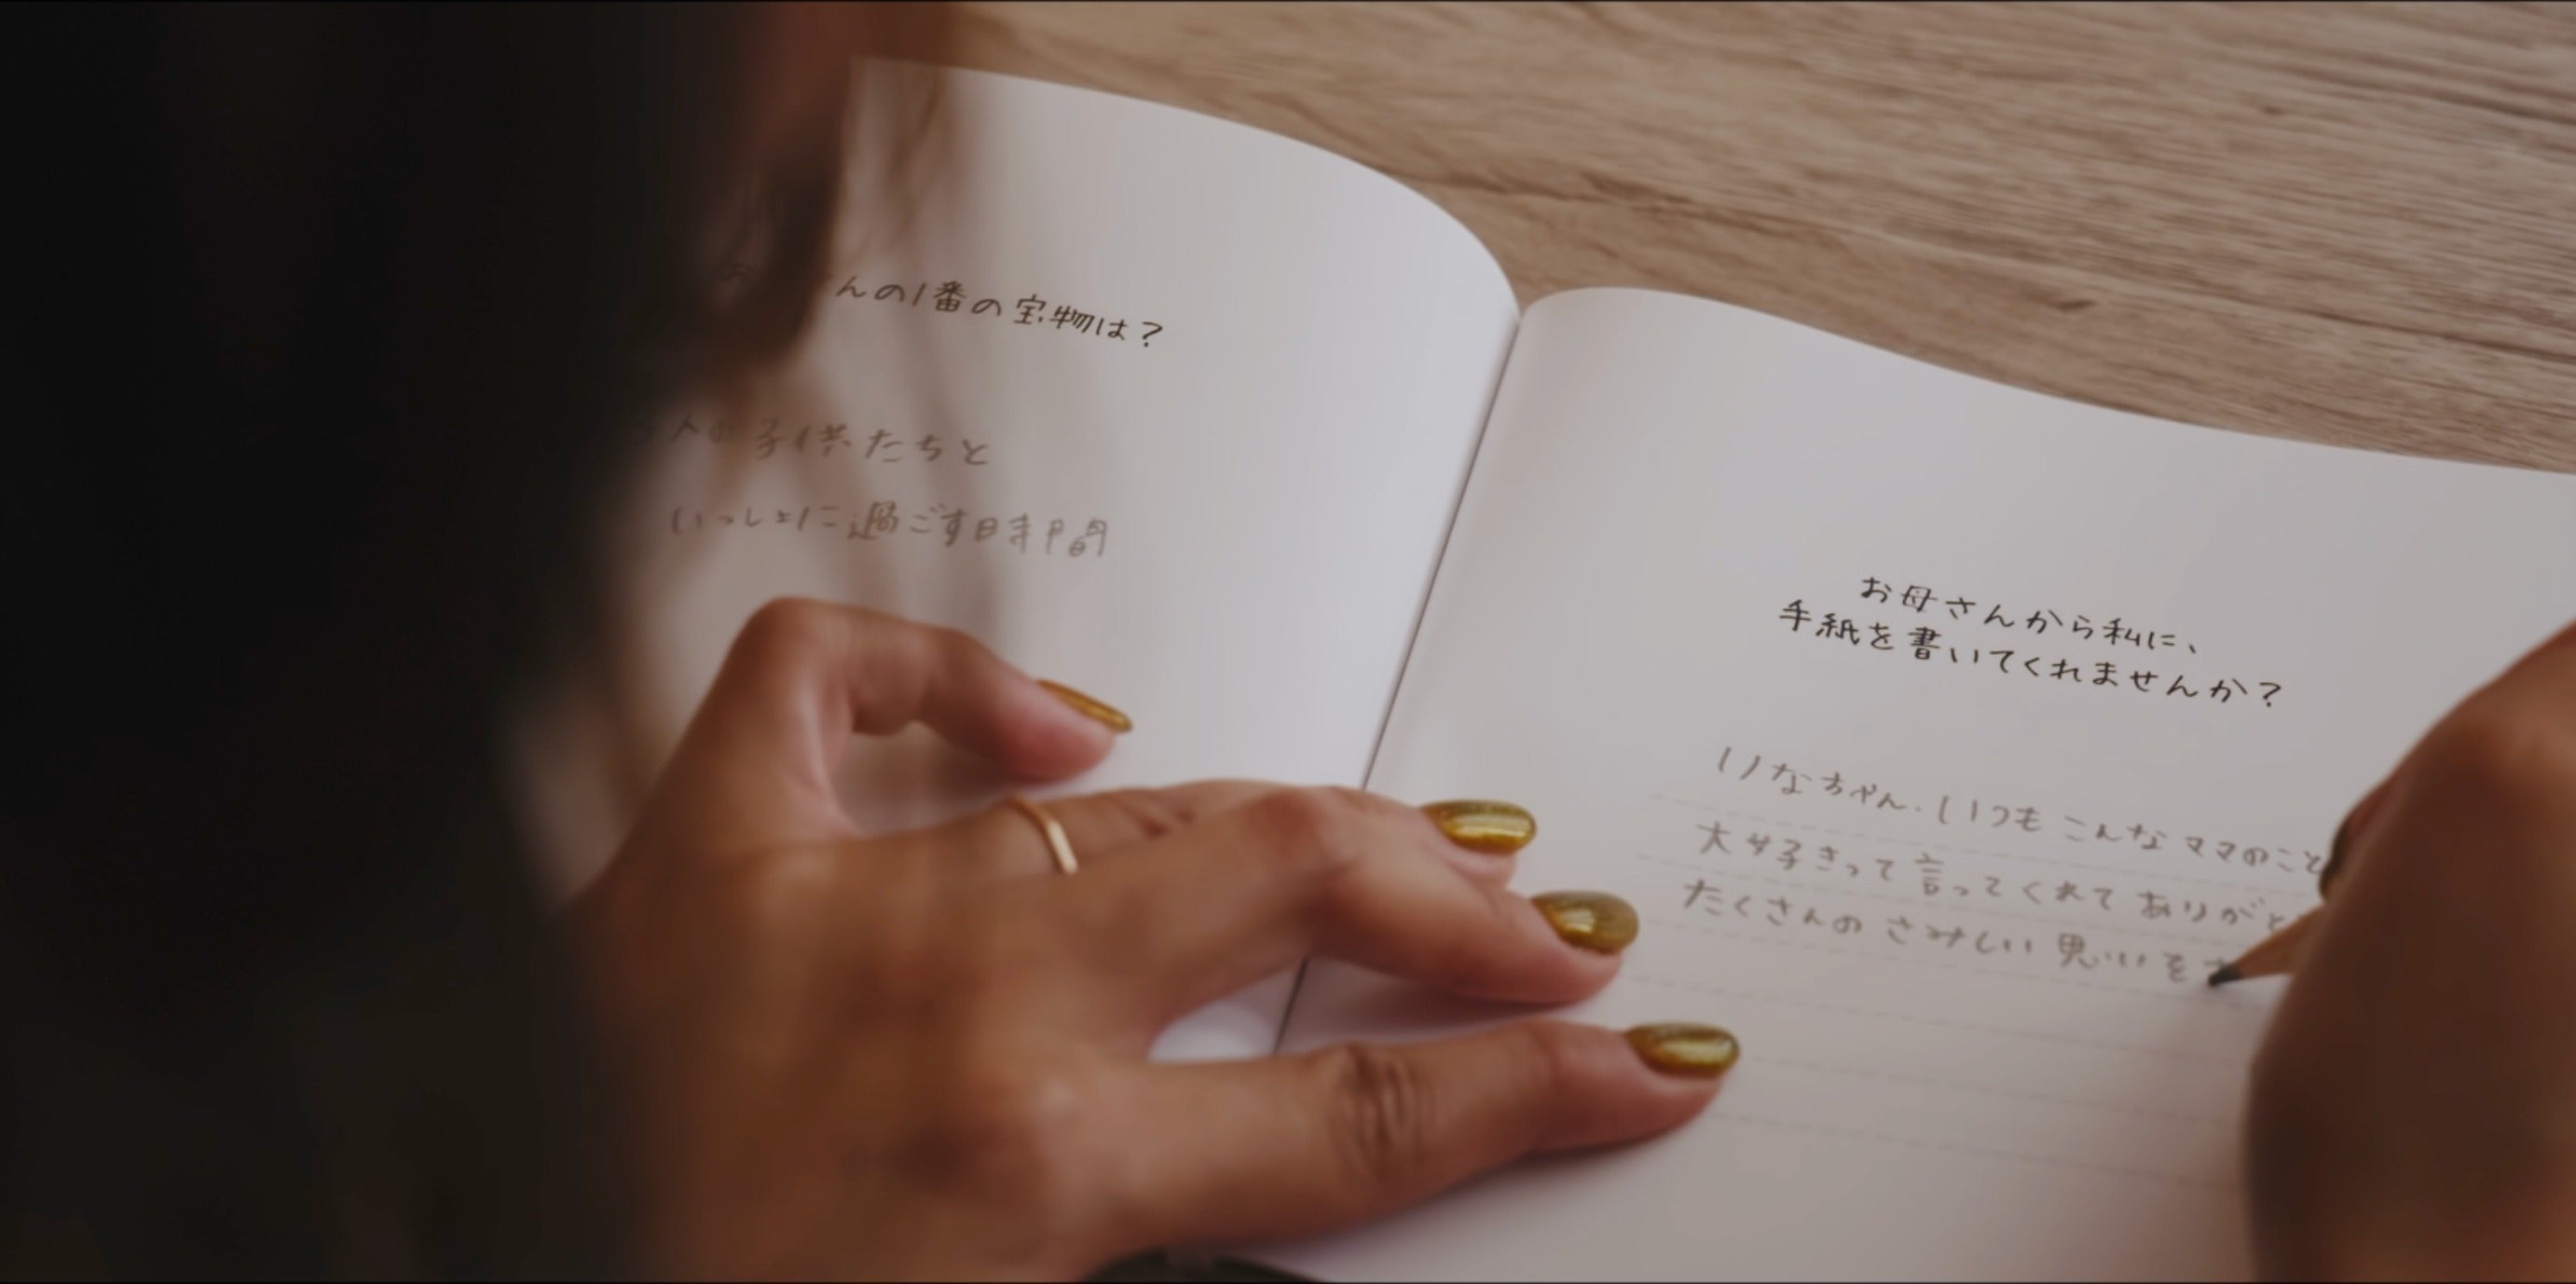 んの1番の宝物は？
人の子供たちと
いっしょに過ごす時間
お母さんから私に、
手紙を書いてくれませんか？
りなちゃん、いつもこんなママのこと
大好きって言ってくれてありがと
たくさんのさみしい思いをさ